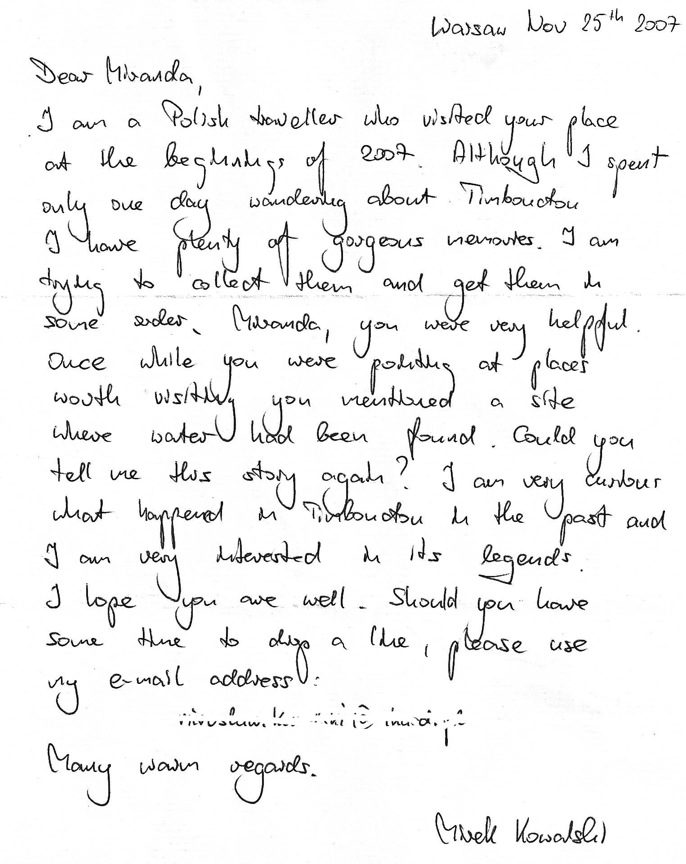 Warsaw Nov 25th 2007
Dear Miranda,
I am a Polish traveller who visited your place
at the beginnings of 2007. Although I spent
only one day wandering about Timbouctou
I have plenty of gorgeous memories. I am
trying to collect them and get them in
some order. Miranda, you were very helpful.
Once while you were pointing at places
worth visiting you mentioned a site
where water had been found. Could you
tell me this story again? I am very curious
what happened in Timbouctou in the past and
I am very interested in its legends.
I hope you are well. Should you have
some time to drop a line, please use
my e-mail address:
Many warm regards.
Mirek Kowalski